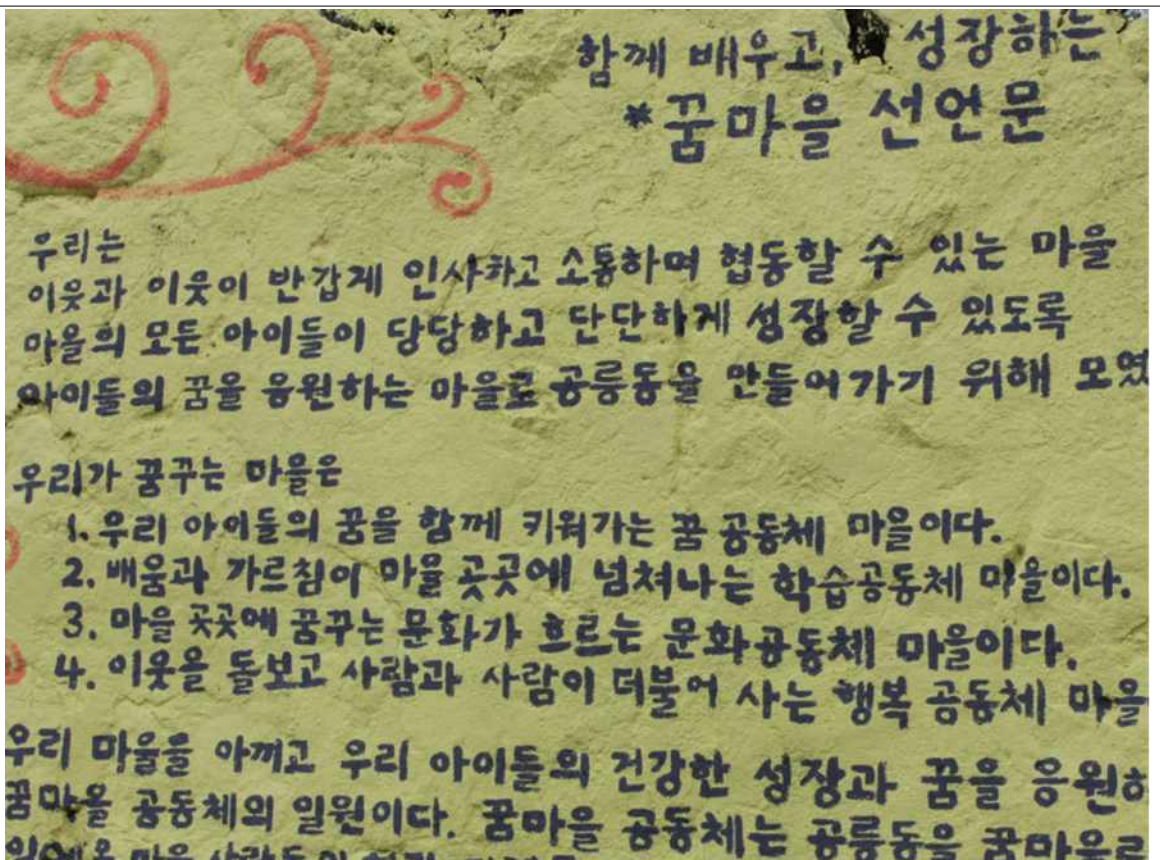 함께 배우고, 성장하는
*꿈마을 선언문
우리는
이웃과 이웃이 반갑게 인사하고 소통하며 협동할 수 있는 마을
마을의 모든 아이들이 당당하고 단단하게 성장할 수 있도록
아이들의 꿈을 응원하는 마을로 공릉동을 만들어가기 위해 모였
우리가 꿈꾸는 마을은
1. 우리 아이들의 꿈을 함께 키워가는 꿈 공동체 마을이다.
2. 배움과 가르침이 마을 곳곳에 넘쳐나는 학습공동체 마을이다.
3. 마을 곳곳에 꿈꾸는 문화가 흐르는 문화공동체 마을이다.
4. 이웃을 돌보고 사람과 사람이 더불어 사는 행복 공동체 마을
우리 마을을 아끼고 우리 아이들의 건강한 성장과 꿈을 응원하
꿈마을 공동체의 일원이다. 꿈마을 공동체는 공릉동을 꿈마을로